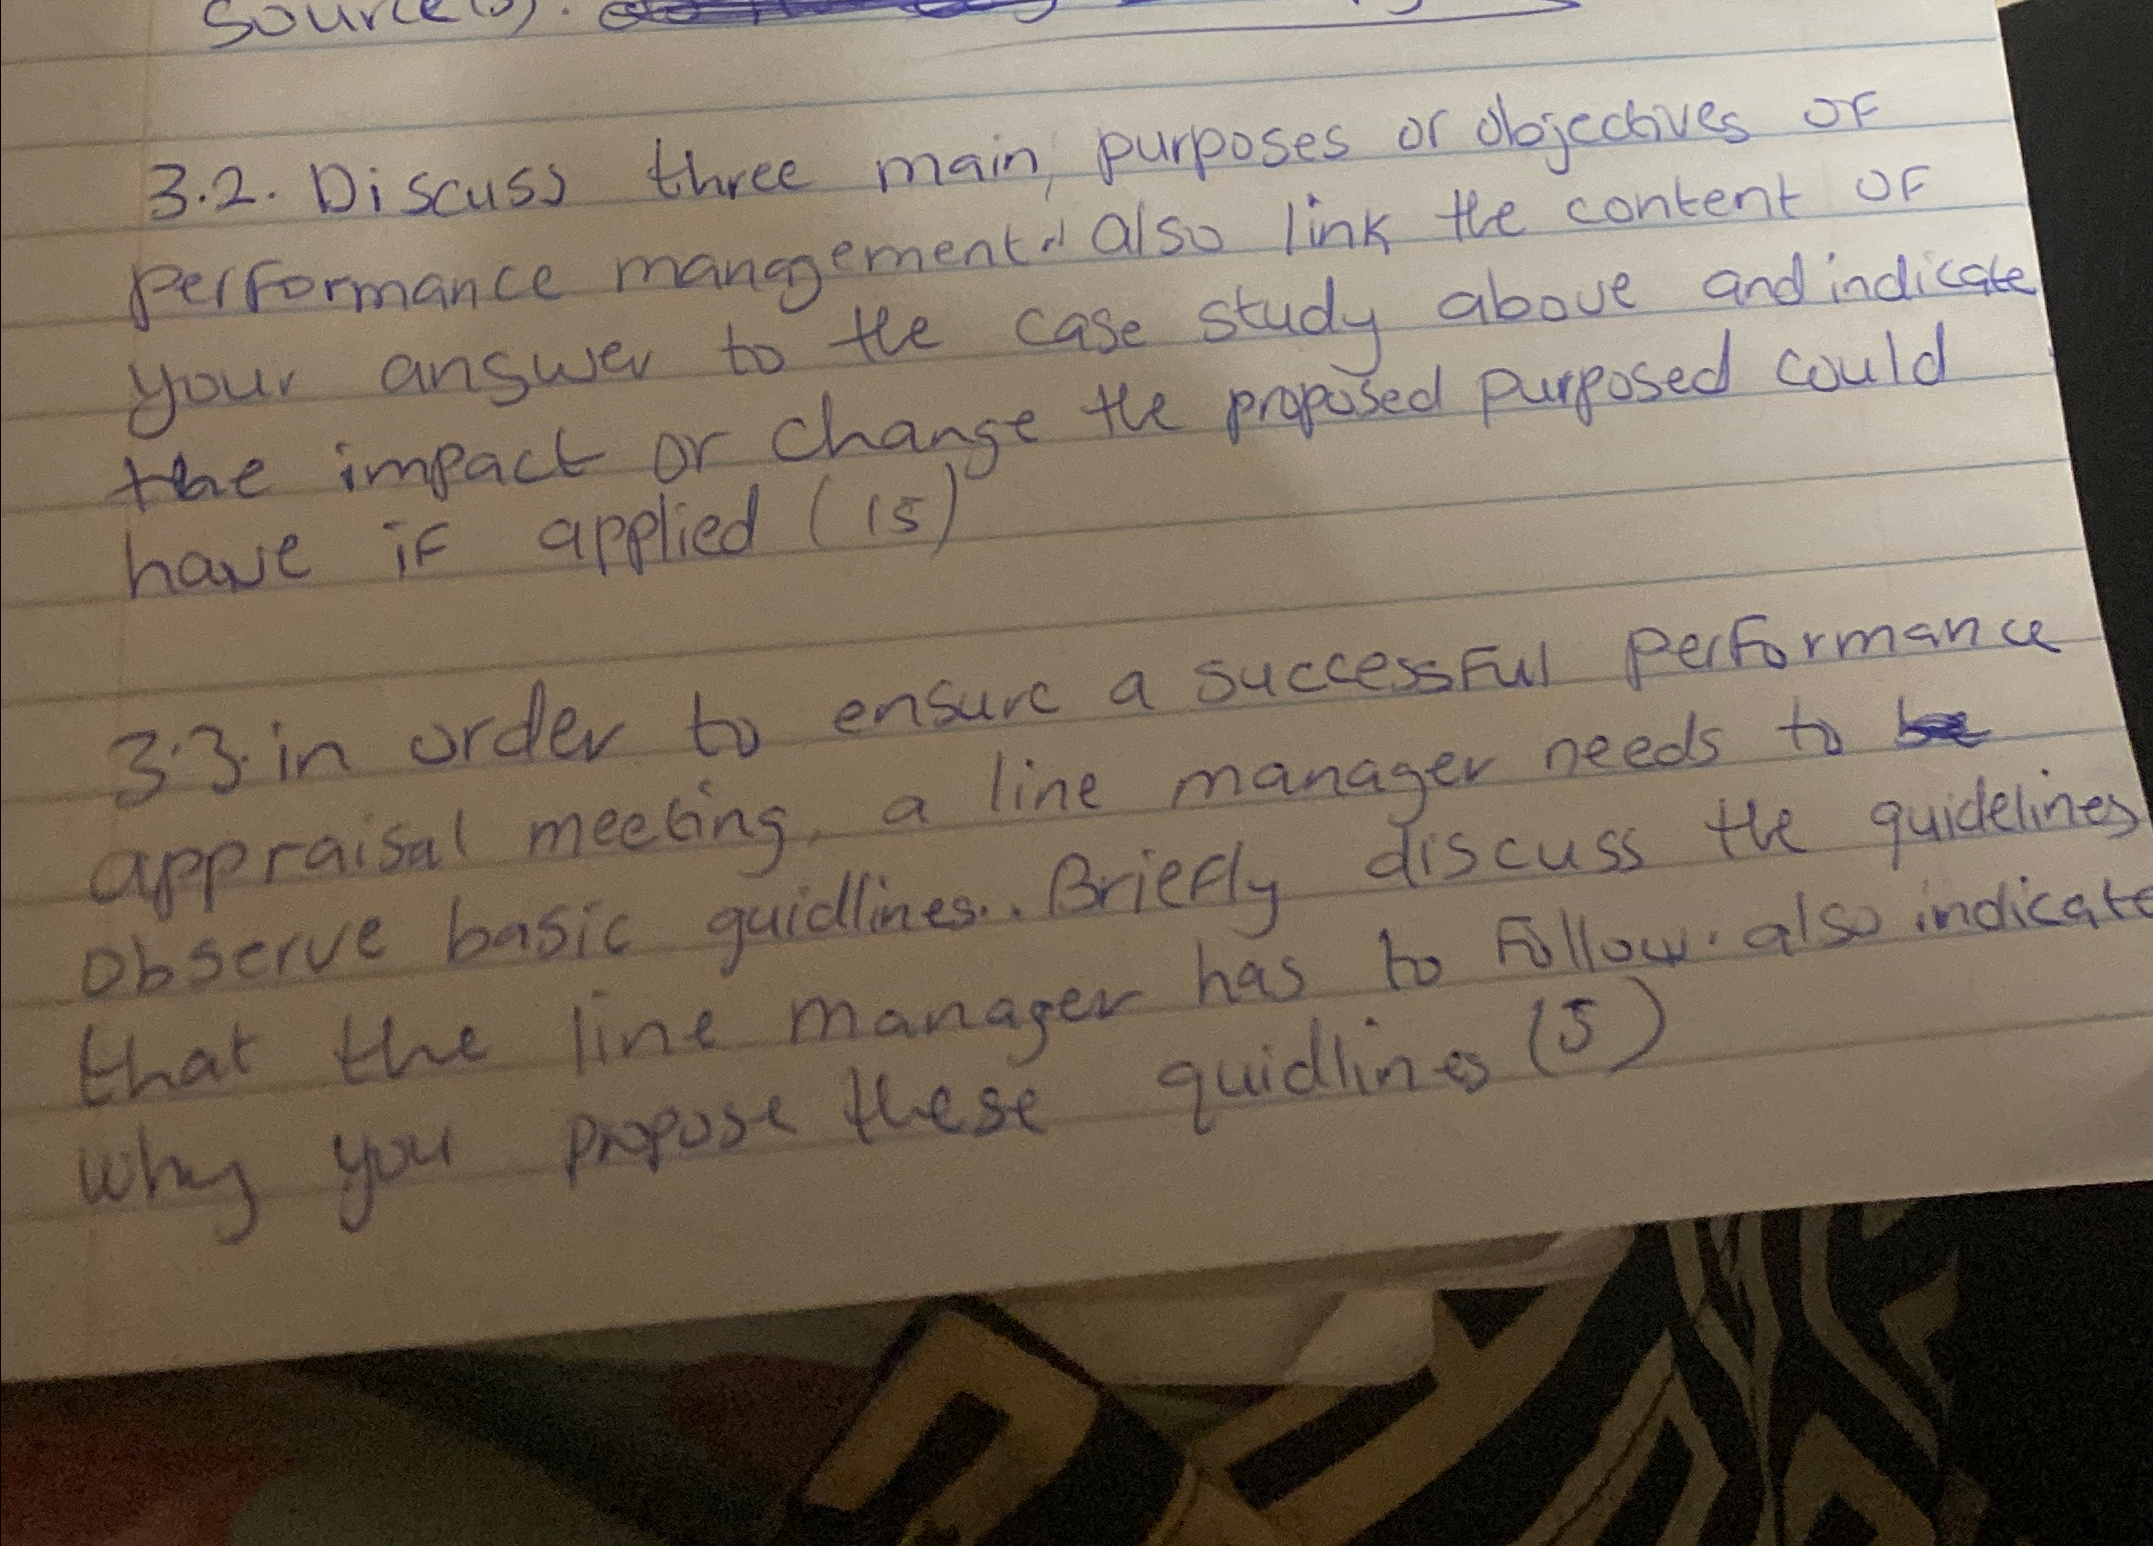 Source(s).
3.2. Discuss three main, purposes or objectives of
performance management. also link the content of
your answer to the case study above and indicate
the impact or change the proposed purposed could
have if applied (15)
3.3. in order to ensure a successful performance
appraisal meeting, a line manager needs to
observe basic guidlines.. Briefly discuss the guidelines
that the line manager has to follow. also indicate
why you propose these guidlines (5)